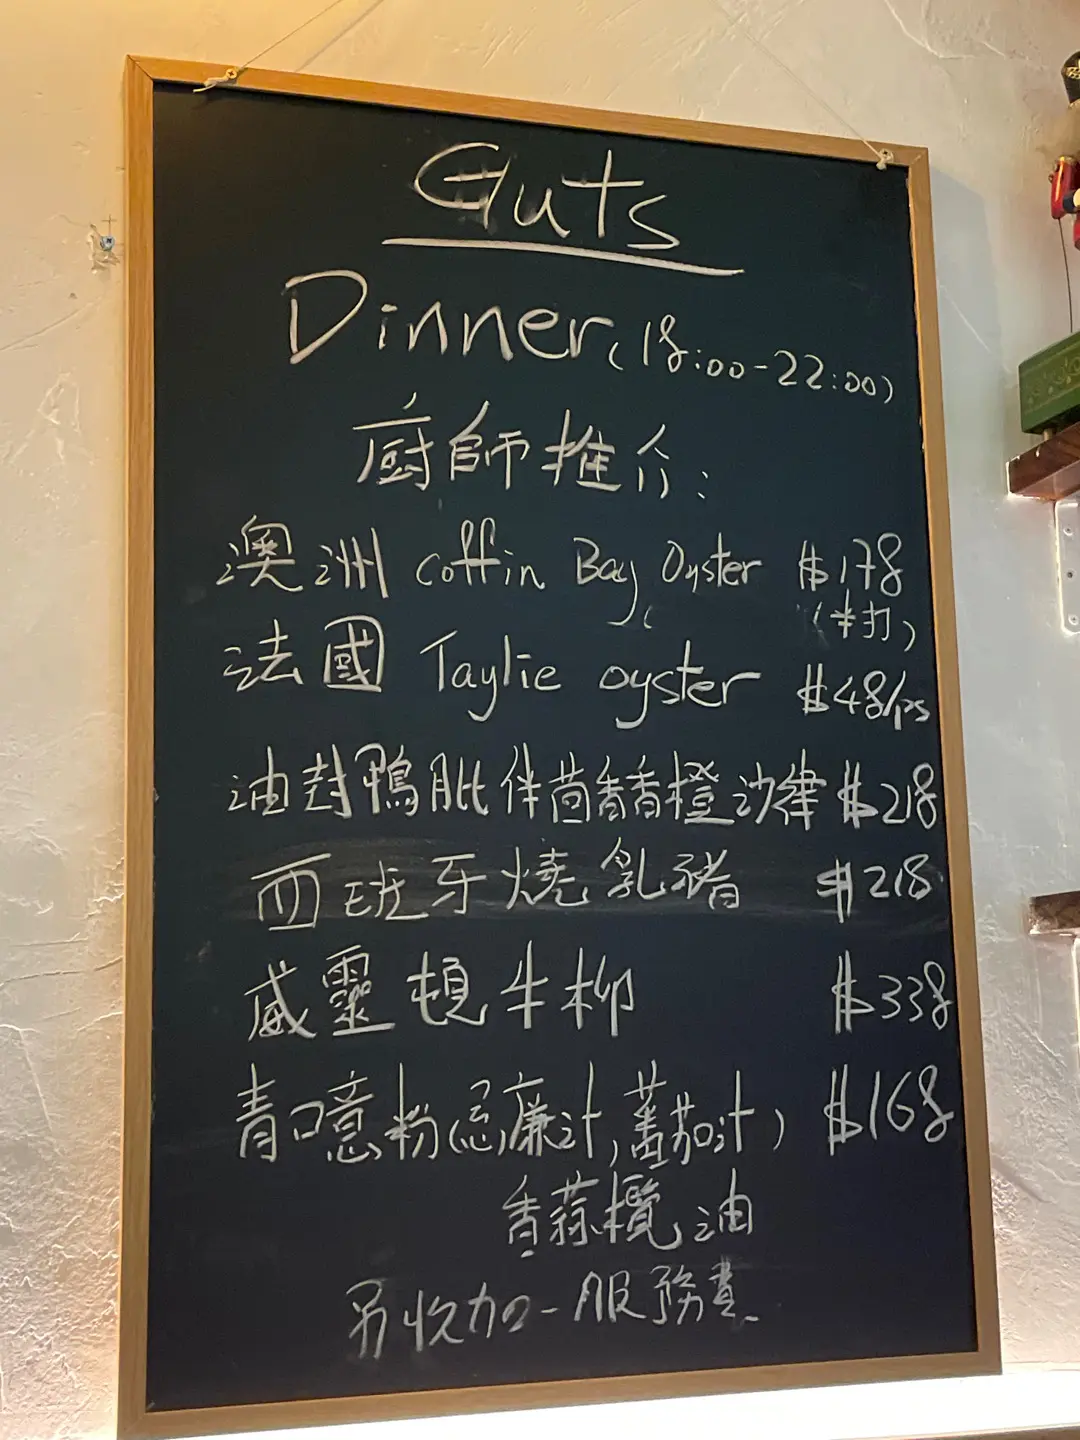 Guts
Dinner (18:00-22:00)
廚師推介:
澳洲 Coffin Bay Oyster $178
(半打)
法國 Taylie oyster $48/ps
油封鴨肶伴茴香香橙沙律 $218
西班牙燒乳豬 $218
威靈頓牛柳 $338
青口意粉(忌廉汁,蕃茄汁) $168
香蒜欖油
另收加一服務費